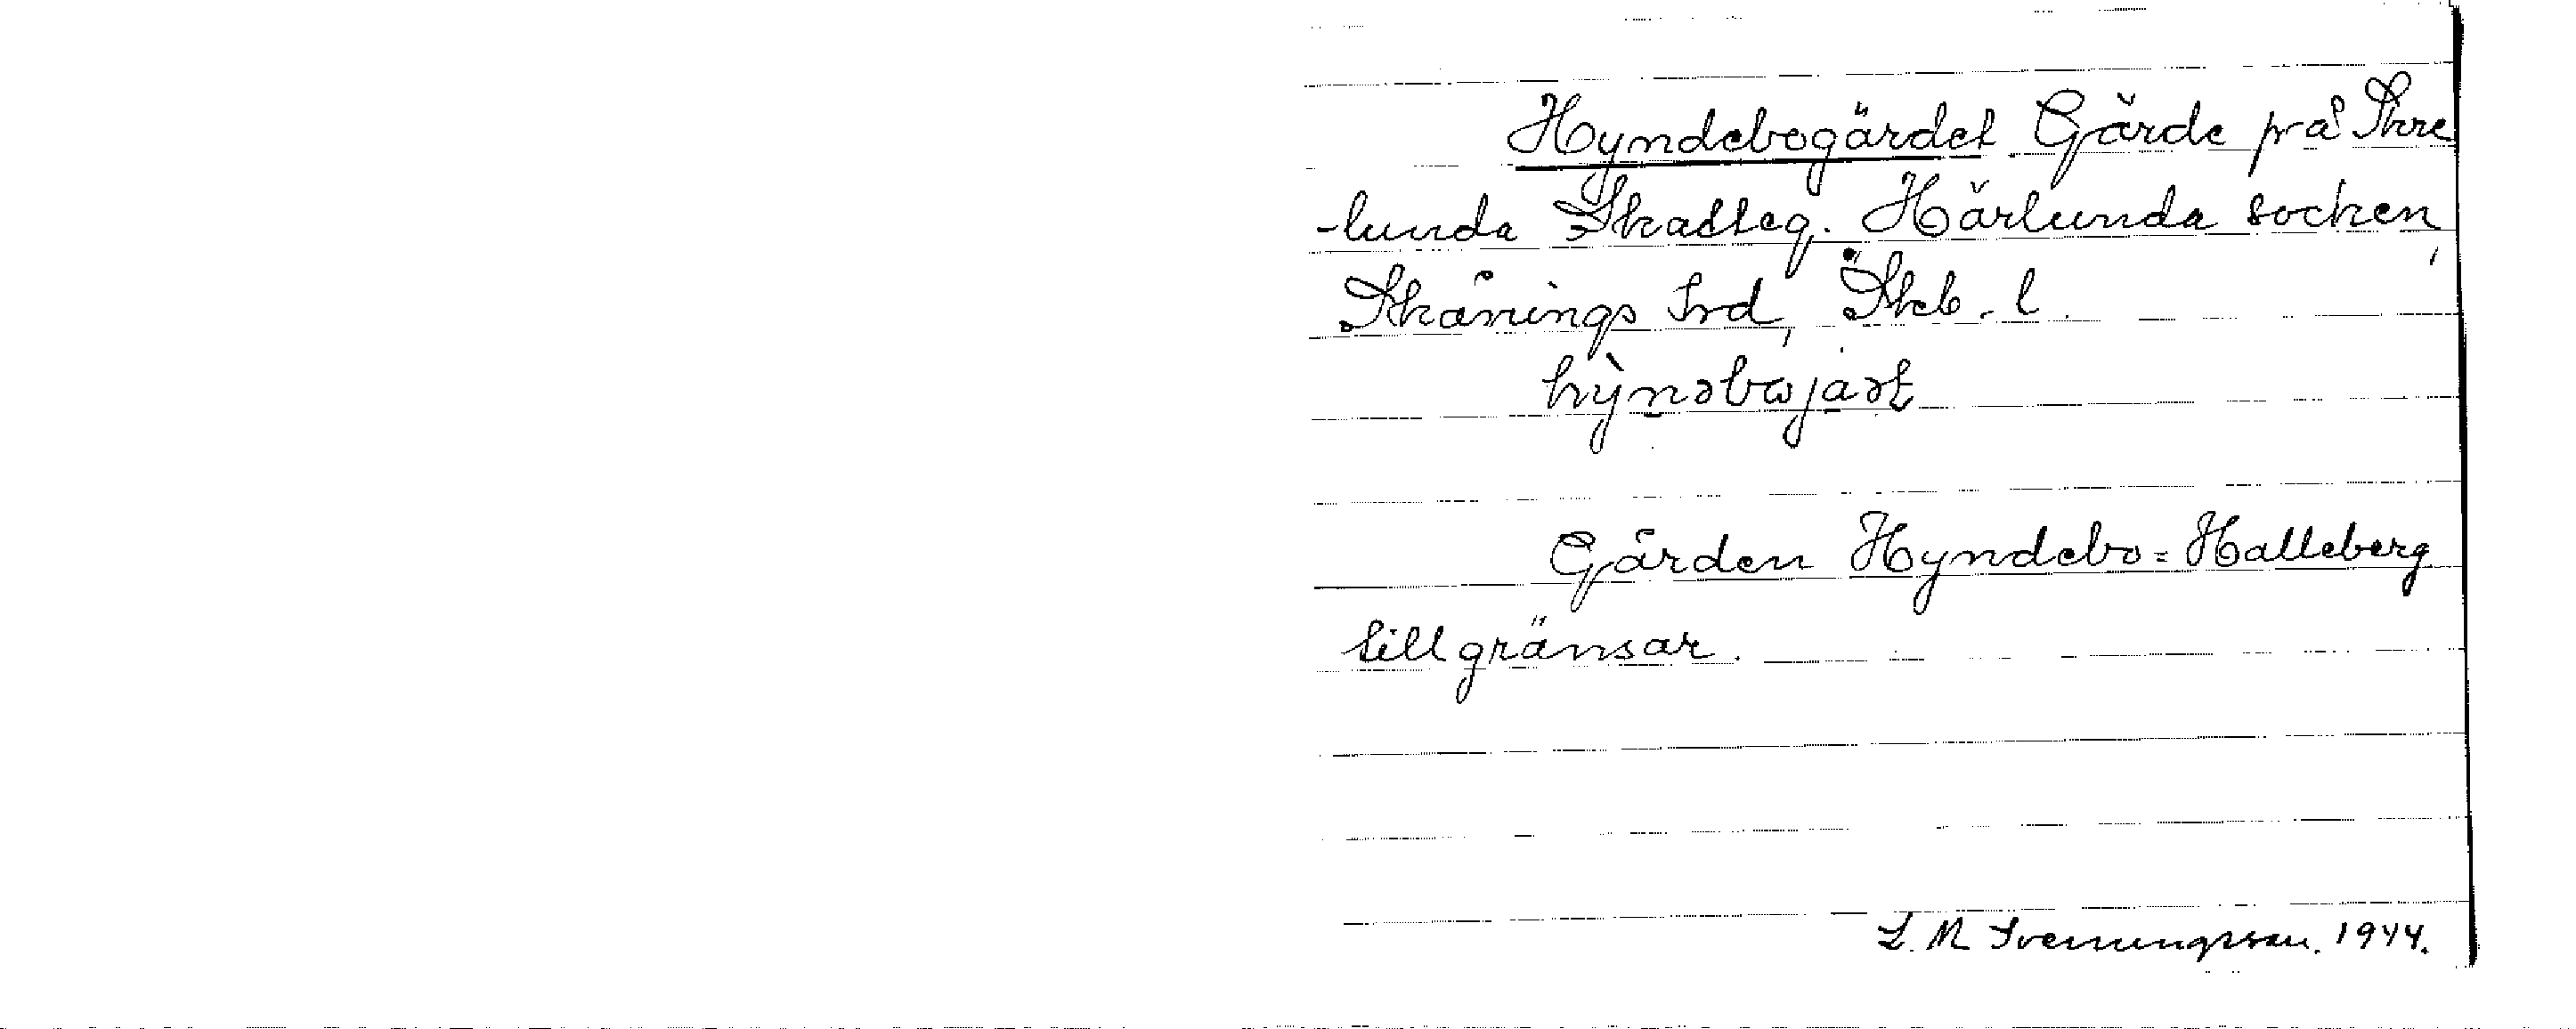 Hyndebogärdet Gärde på Skre
-lunda Skatteg. Härlunda socken,
Skånings hrd, Skb. l.
Gården Hyndebo=Halleberg
tillgränsar.
L. M. Svenungsson. 1944.